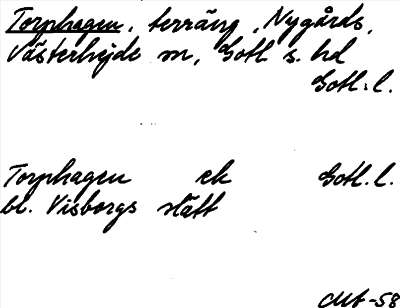 Torphagen, terräng, Nygårds,
Västerhejde sn, Gotl s. hd
Gotl. l.
Torphagen ek Gotl. l.
bl. Visborgs slätt
-58